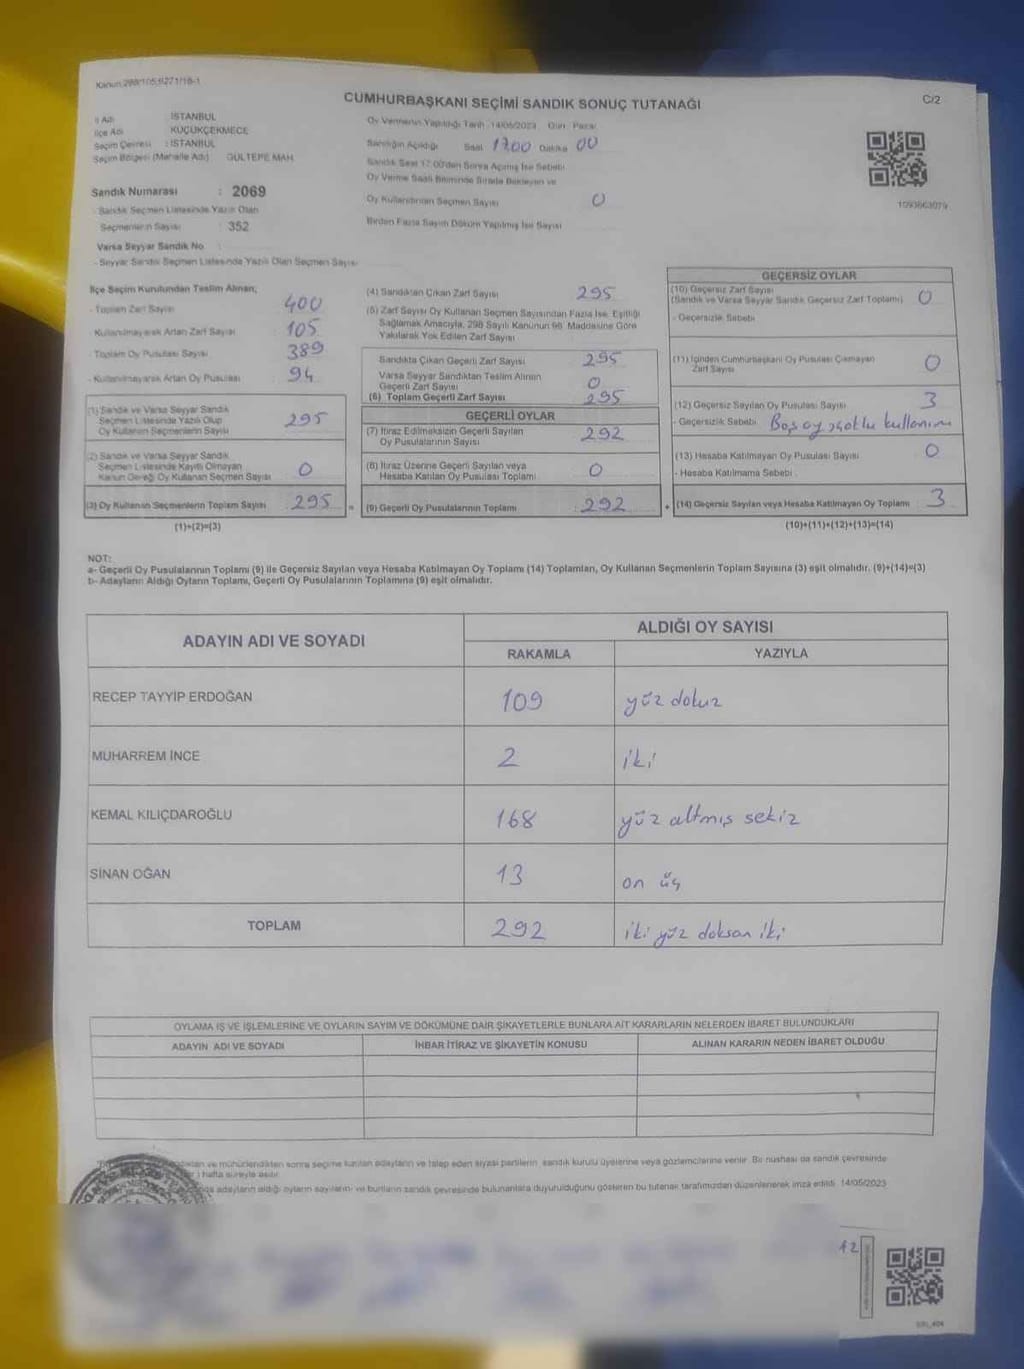 Kanun:298/105;6271/18-1
C/2
CUMHURBAŞKANI SEÇİMİ SANDIK SONUÇ TUTANAĞI
İl Adı : İSTANBUL
İlçe Adı : KÜÇÜKÇEKMECE
Seçim Çevresi : İSTANBUL
Seçim Bölgesi (Mahalle Adı) : GÜLTEPE MAH.
Sandık Numarası : 2069
- Sandık Seçmen Listesinde Yazılı Olan
Seçmenlerin Sayısı : 352
Varsa Seyyar Sandık No :
- Seyyar Sandık Seçmen Listesinde Yazılı Olan Seçmen Sayısı
Oy Vermenin Yapıldığı Tarih : 14/05/2023 Gün : Pazar
Sandığın Açıldığı Saat 17.00 Dakika 00
Sandık Saat 17:00'den Sonra Açılmış İse Sebebi
Oy Verme Saati Bitiminde Sırada Bekleyen ve
Oy Kullandırılan Seçmen Sayısı 0
Birden Fazla Sayım Döküm Yapılmış İse Sayısı
1093663079
İlçe Seçim Kurulundan Teslim Alınan;
- Toplam Zarf Sayısı 400
- Kullanılmayarak Artan Zarf Sayısı 105
- Toplam Oy Pusulası Sayısı 389
- Kullanılmayarak Artan Oy Pusulası 94
(1) Sandık ve Varsa Seyyar Sandık
Seçmen Listesinde Yazılı Olup
Oy Kullanan Seçmenlerin Sayısı 295
(2) Sandık ve Varsa Seyyar Sandık
Seçmen Listesinde Kayıtlı Olmayan
Kanun Gereği Oy Kullanan Seçmen Sayısı 0
(3) Oy Kullanan Seçmenlerin Toplam Sayısı 295
(1)+(2)=(3)
(4) Sandıktan Çıkan Zarf Sayısı 295
(5) Zarf Sayısı Oy Kullanan Seçmen Sayısından Fazla İse, Eşitliği
Sağlamak Amacıyla, 298 Sayılı Kanunun 98. Maddesine Göre
Yakılarak Yok Edilen Zarf Sayısı
Sandıkta Çıkan Geçerli Zarf Sayısı 295
Varsa Seyyar Sandıktan Teslim Alınan
Geçerli Zarf Sayısı 0
(6) Toplam Geçerli Zarf Sayısı 295
GEÇERLİ OYLAR
(7) İtiraz Edilmeksizin Geçerli Sayılan
Oy Pusulalarının Sayısı 292
(8) İtiraz Üzerine Geçerli Sayılan veya
Hesaba Katılan Oy Pusulası Toplamı 0
= (9) Geçerli Oy Pusulalarının Toplamı : 292
GEÇERSİZ OYLAR
(10) Geçersiz Zarf Sayısı
(Sandık ve Varsa Seyyar Sandık Geçersiz Zarf Toplamı) 0
- Geçersizlik Sebebi
(11) İçinden Cumhurbaşkanı Oy Pusulası Çıkmayan
Zarf Sayısı 0
(12) Geçersiz Sayılan Oy Pusulası Sayısı 3
- Geçersizlik Sebebi Boş oy, kullanımı
(13) Hesaba Katılmayan Oy Pusulası Sayısı 0
- Hesaba Katılmama Sebebi :
+ (14) Geçersiz Sayılan veya Hesaba Katılmayan Oy Toplamı 3
(10)+(11)+(12)+(13)=(14)
NOT:
a- Geçerli Oy Pusulalarının Toplamı (9) ile Geçersiz Sayılan veya Hesaba Katılmayan Oy Toplamı (14) Toplamları, Oy Kullanan Seçmenlerin Toplam Sayısına (3) eşit olmalıdır. (9)+(14)=(3)
b- Adayların Aldığı Oyların Toplamı, Geçerli Oy Pusulalarının Toplamına (9) eşit olmalıdır.
ADAYIN ADI VE SOYADI
ALDIĞI OY SAYISI
RAKAMLA YAZIYLA
RECEP TAYYİP ERDOĞAN 109 yüz dokuz
MUHARREM İNCE 2 iki
KEMAL KILIÇDAROĞLU 168 yüz altmış sekiz
SİNAN OĞAN 13 on üç
TOPLAM 292 iki yüz doksan iki
OYLAMA İŞ VE İŞLEMLERİNE VE OYLARIN SAYIM VE DÖKÜMÜNE DAİR ŞİKAYETLERLE BUNLARA AİT KARARLARIN NELERDEN İBARET BULUNDUKLARI
ADAYIN ADI VE SOYADI İHBAR İTİRAZ VE ŞİKAYETİN KONUSU ALINAN KARARIN NEDEN İBARET OLDUĞU
ve mühürlendikten sonra seçime katılan adayların ve talep eden siyasi partilerin sandık kurulu üyelerine veya gözlemcilerine verilir. Bir nüshası da sandık çevresinde
1 hafta süreyle asılır.
adayların aldığı oyların sayılarını ve bunların sandık çevresinde bulunanlara duyurulduğunu gösteren bu tutanak tarafımızdan düzenlenerek imza edildi. 14/05/2023
A2